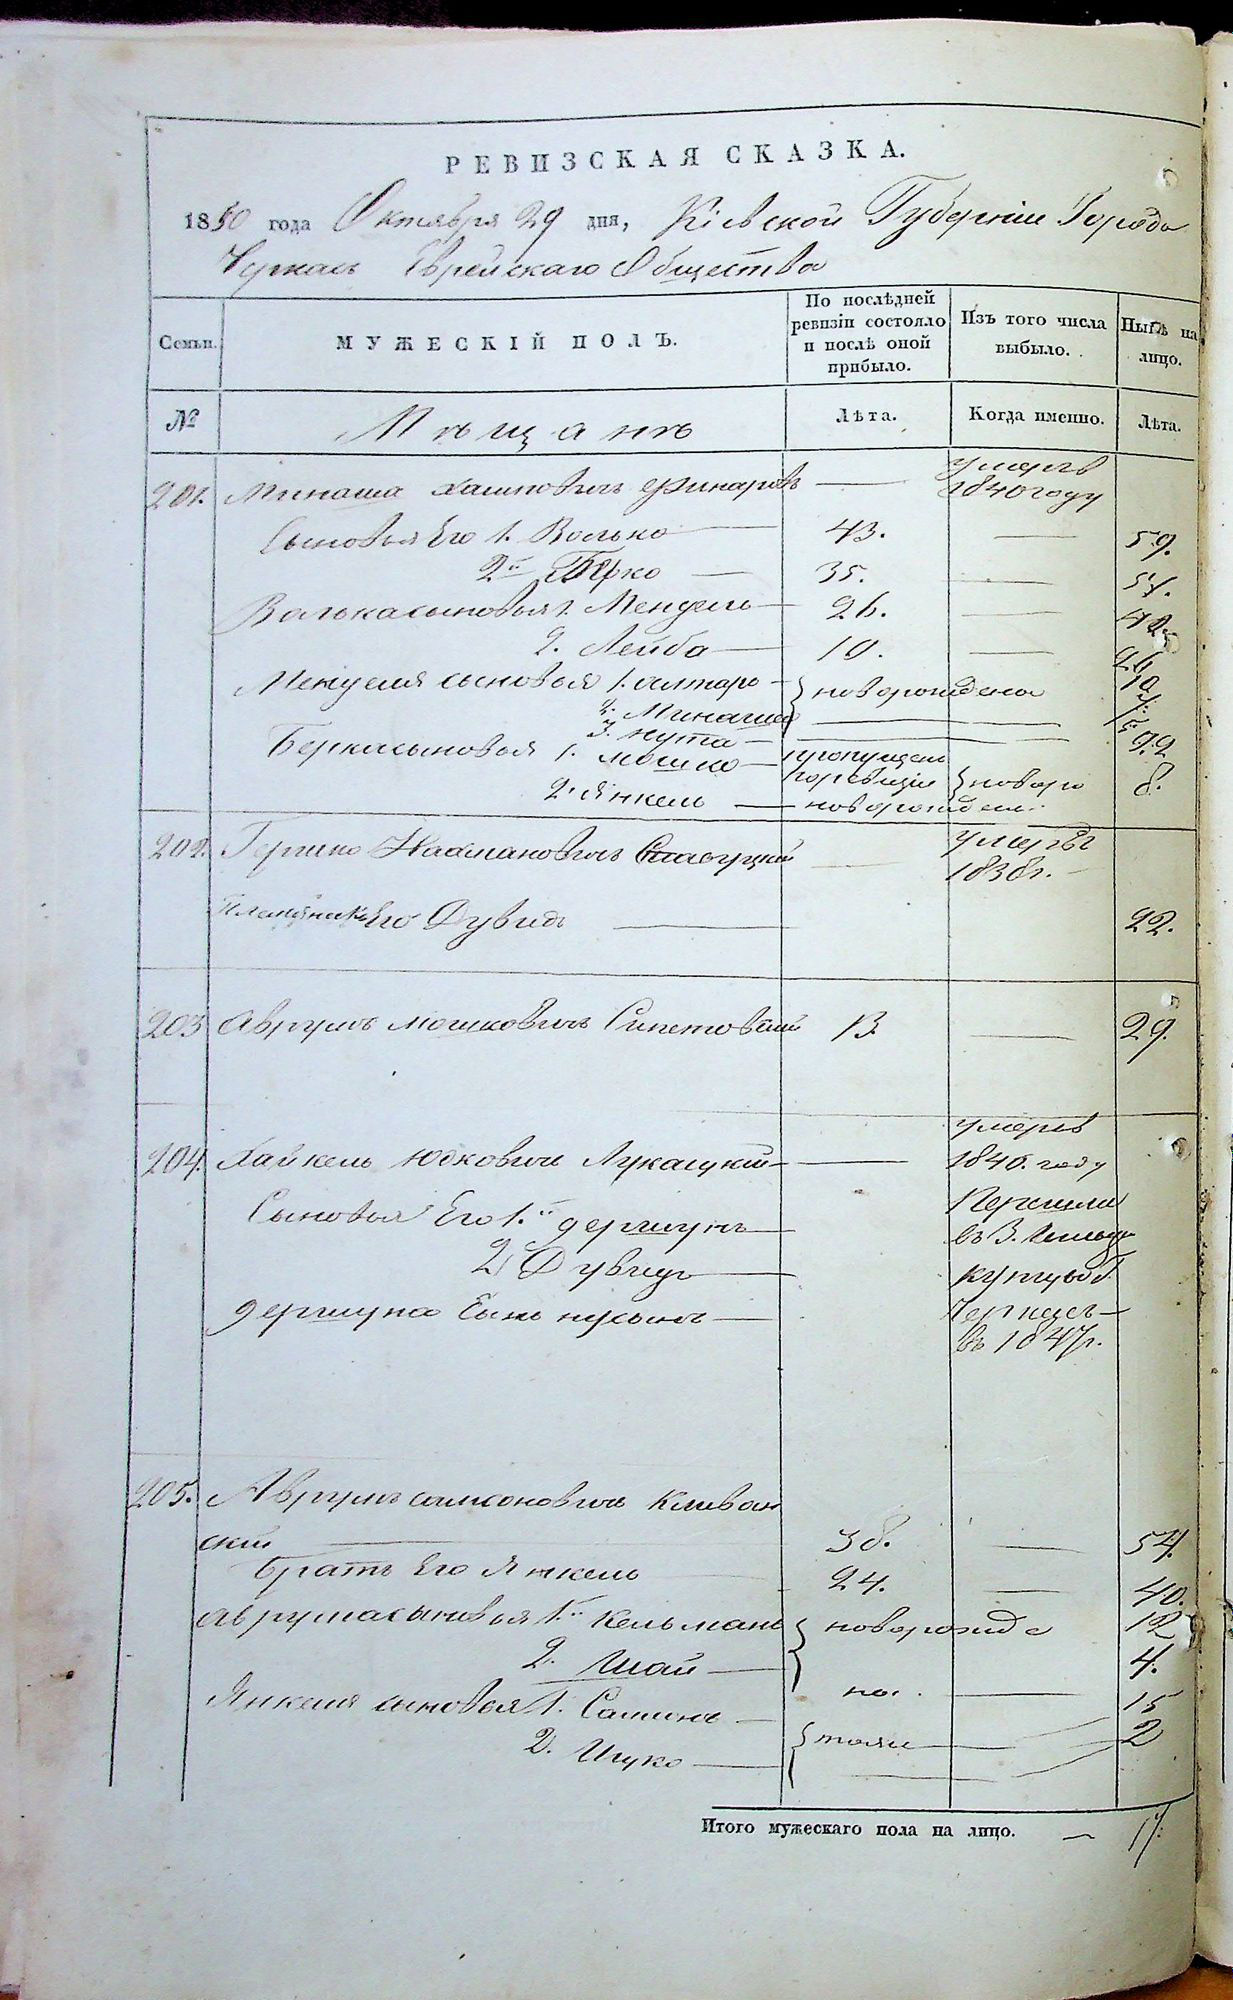 РЕВИЗСКАЯ СКАЗКА.
1850 года Октября 29 дня, Кіевской Губерніи Города
Черкасъ Еврейскаго Общества
Семьи. МУЖЕСКІЙ ПОЛЪ. По послѣдней ревизіи состояло и послѣ оной прибыло. Изъ того числа выбыло. Нынѣ на лицо.
№ Мѣщанъ Лѣта. Когда именно. Лѣта.
201. Минаша Хаимовичъ — умеръ 1840 году
Сыновья Его 1. Волько 43. — 59.
2й Берко — 35. — 51.
Волька сыновья 1. Мендель 26. — 42
2. Лейба — 10. — 26
Менделя сыновья 1. Алтеръ новорожденъ 10
2. Минаша —
3. Нута —
Берка сыновья 1. Мошко — пропущенъ по ревизіи 22
2. Янкель — новорожден. 8.
202. Гершко Нахмановичъ — умеръ 1838г.
Племянникъ Его Дувидъ — 22.
203 Аврумъ Мошковичъ 13 — 29.
204. Хайкель Юдковичъ — умеръ 1840. году
Сыновья Его 1.й Гершунъ — Перешли
въ 3. Гильдію
2. Дувидъ — купцовъ
Гершуна Сынъ Нусынъ — Черкасъ
въ 1847г.
205. Аврумъ Самсоновичъ Клеван
скій — 38. — 54.
Братъ Его Янкель 24. — 40.
Аврума сыновья 1.й Кельманъ новорожде 12
2. Шай — но. — 4.
Янкеля сыновья 1. — 15
2. Ицко — тоже — 2
Итого мужескаго пола на лицо. — 17.